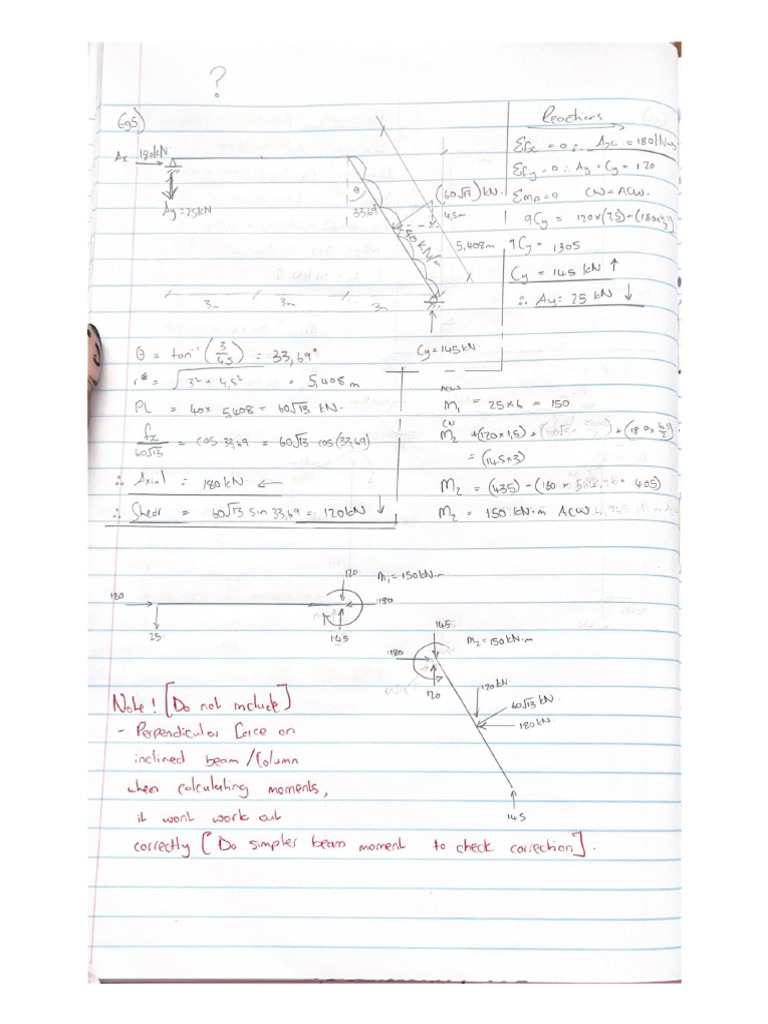 ?
Eg5)
Reactions
Ax 180kN
ΣFx = 0 ∴ Ax = 180kN→
ΣFy = 0 ∴ Ay + Cy = 120
Ay = 25kN
θ
33,69
(60√13) kN.
4,5m
40 kN/m
5,408m
ΣMA = 0 CW = ACW.
9Cy = 120×(7,5) + (180×
9Cy = 1305
Cy = 145 kN ↑
∴ Ay = 25 kN ↓
3m 3m 3m
Cy = 145kN
θ = tan⁻¹ (3/4,5) = 33,69°
= √(3² + 4,5²) = 5,408 m
PL = 40× 5,408 = 60√13 kN.
fx/60√13 = cos 33,69 = 60√13 cos(33,69)
∴ Axial = 180kN ←
∴ Shear = 60√13 sin 33,69 = 120kN ↓
ACW
M₁ = 25×6 = 150
CW
M₂ +(120×1,5) + (180×
= (145×3)
M₂ = (435) - (180 + 405)
M₂ = 150 kN.m ACW
120 M₁ = 150kN.m
180 180
25 145
145 M₂ = 150kN.m
180
120
120kN
60√13 kN.
180kN
145
Note! [Do not include]
- Perpendicular force on
inclined beam/Column
when calculating moments,
it wont work out
correctly [Do simpler beam moment to check correction].